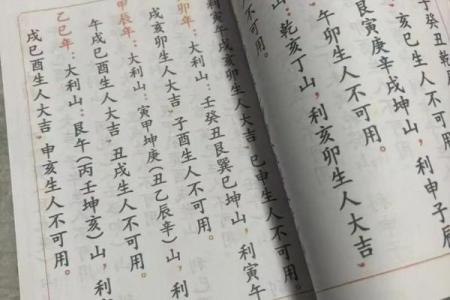 子癸丑乾
，亥巳生人不可用。
艮寅庚辛戌坤山，利申子辰
午卯生人不可用。
，乾亥丁山，利亥卯生人大吉
不可用。
利寅午戌亥卯生人大吉。巳申生人不可用。
卯年：大利山：壬癸丑艮巽巳坤山，利寅午
戌亥卯生人大吉。子酉生人不可用。
甲辰年：大利山：寅甲坤庚（丑乙辰辛）山，利
午戌巳酉生人大吉。丑戌生人不可用。
乙巳年：大利山：艮午（丙壬坤亥）山，利
戌巳酉生人大吉。申亥生人不可用。